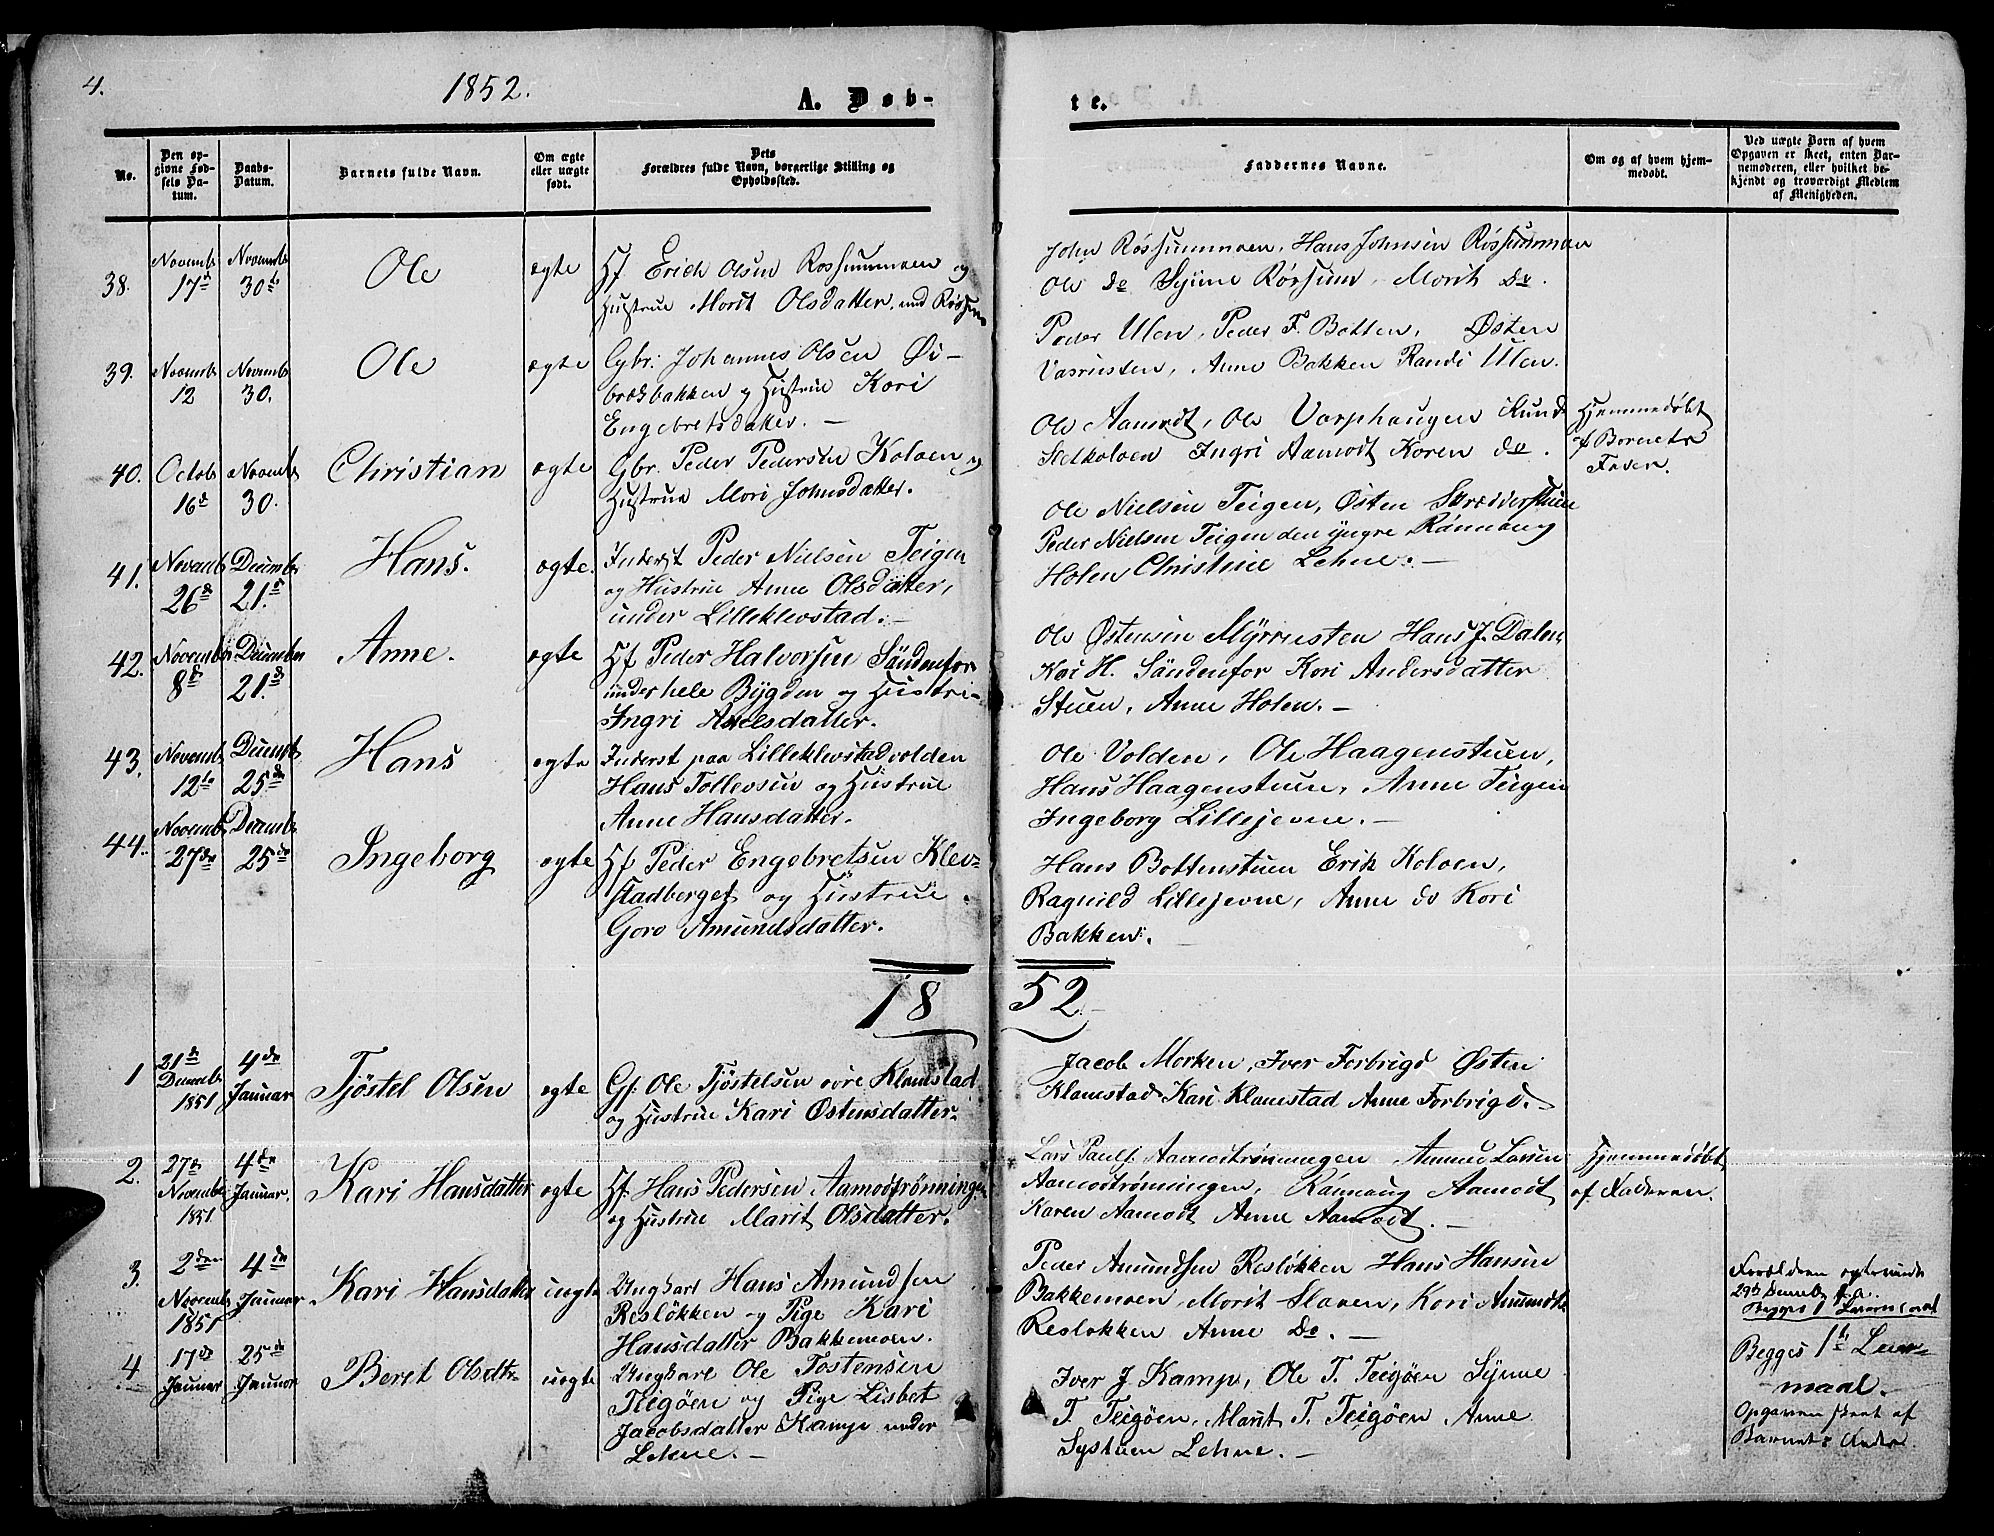 4.
1852.
A. Døb-
te.
No.
Den op-
givne Fød-
sels Da-
tum.
Daabs-
Datum.
Barnets fulde Navn.
Om ægte
eller uægte
født.
Dets
Forældres fulde Navn, borgerlige Stilling og
Opholdssted.
Faddernes Navne.
Om og af hvem hjem-
medøbt.
Ved uægte Born af hvem
Opgaven er skeet, enten Bar-
nemoderen, eller hvilket be-
kjendt og troværdigt Medlem
af Menigheden.
38.
Novemb
17de
Novemb
30te
Ole
ægte
Hf Erich Olsen Rossummoen og
Hustrue Morit Olsdatter, und Røssum
John Røssummoen, Hans Johnsen Røssummoen
Ole do Synne Rørsum, Morit do.
39.
Novemb
12
Novemb
30.
Ole
ægte
Gbr. Johannes Olsen Øi-
brædsbakken og Hustrue Kari
Engebretsdatter. —
Peder Ulen, Peder F. Botten, Østen
Vasrusten, Anne Bakken Randi Ulen.
40.
Octob
16de
Novemb
30.
Christian
ægte
Gbr. Peder Pedersen Kolven og
Hustrue Mari Johnsdatter.
Ole Aamodt, Ole Vorphaugen
Ingri Aamodt Karen do.
Hjemmedøbt
af Barnets
Fader.
41.
Novemb
26de
Decemb
21de
Hans.
ægte.
Inderst Peder Nielsen Teigen
og Hustrue Anne Olsdatter,
under Lilleklevstad. —
Ole Nielsen Teigen, Østen Skrædderstuen
Peder Nielsen Teigen den yngre Rønnaug
Holen Christine Lehne. —
42.
Novemb
8de
Decemb
21de
Anne.
ægte
Hf Peder Halvorsen Søndenfor
under hele Bygden og Hustru-
Ingri Axelsdatter.
Ole Østensen Myrrusten Hans J. Dalen
Kari H. Søndenfor Kari Andersdatter
Stuen, Anne Holen. —
43.
Novemb
12te
Decemb
25de
Hans
ægte
Inderst paa Lilleklevstadvolden
Hans Tollevsen og Hustrue
Anne Hansdatter.
Ole Volden, Ole Haagenstuen,
Hans Haagenstuen, Anne Teigen
Ingeborg Lillejevne. —
44.
Novemb
27de
Decemb
25de
Ingeborg
ægte
Hf Peder Engebretsen Klev-
stadberget og Hustrue
Goro Amundsdatter.
Hans Bottenstuen Erik Kolven,
Ragnild Lillejevne, Anne do Kari
Bakken.
18 52
1
21de
Decemb
1851
4de
Januar
Tjøstel Olsen
ægte
Gf. Ole Tjøstelsen øvre Klamstad
og Hustrue Kari Østensdatter.
Jacob Morken, Iver Forbrigd Østen
Klamstad Kari Klamstad Anne Forbrigd. —
2.
27de
Novemb
1851
4de
Januar.
Kari Hansdatter
ægte
Hf. Hans Pedersen Aamodtrønningen
og Hustrue Marit Olsdatter.
Lars Pauls. Aamodtrønningen Amund Larsen
Aamodtrønningen, Rønnaug Aamodt
Karen Aamodt Anne Aamodt. —
Hjemmedøbt
af Faderen.
3.
2den
Novemb
1851
4de
Januar
Kari Hansdatter
uægte
Ungkarl Hans Amundsen
Resløkken og Pige Kari
Hansdatter Bakkemoen.
Peder Amundsen Resløkken Hans Hansen
Bakkemoen, Morit Slaaen, Kari Amundsd
Resløkken Anne do. —
Forældren
29de Decemb f. A.
Begges 1
4
17de
Januar
25de
Januar
Berit Olsdtr
uægte
Ungkarl Ole Tostensen
Teigøen og Pige Lisbet
Jacobsdatter Kamp under
Lehne. —
Iver J. Kamp, Ole T. Teigøen Synne
T. Teigøen, Marit T. Teigøen Anne
Systuen Lehne. —
Begges 1ste Leier-
maal. —
Opgaven skeet af
Barnets Fader.